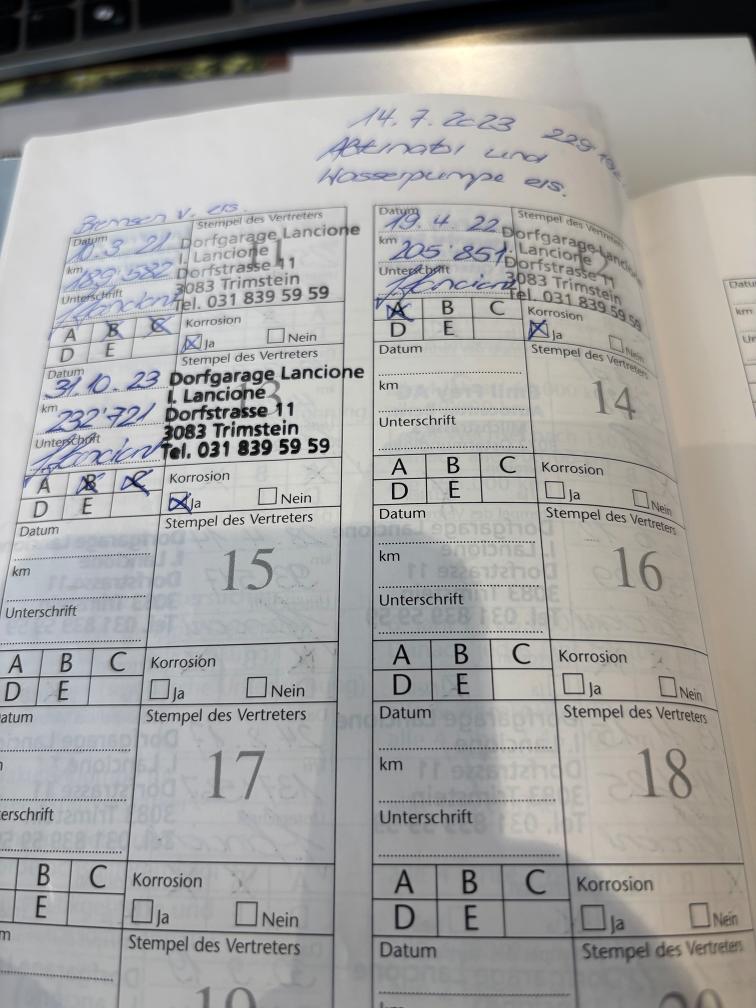 14.7.2023 229
Alternator und
Wasserpumpe ers.
Bremsen v. ers.
Datum 10.3 21
Stempel des Vertreters
km 189'582
Unterschrift
Dorfgarage Lancione
I. Lancione
Dorfstrasse 11
3083 Trimstein
Tel. 031 839 59 59
A B C
D E
Korrosion
Ja Nein
Datum 19. 4. 22
Stempel des Vertreters
km 205'851
Unterschrift
Dorfgarage Lancione
I. Lancione
Dorfstrasse 11
3083 Trimstein
Tel. 031 839 59 59
A B C
D E
Korrosion
Ja Nein
Datum 31.10.23
Stempel des Vertreters
km 232'721
13
Unterschrift
Dorfgarage Lancione
I. Lancione
Dorfstrasse 11
3083 Trimstein
Tel. 031 839 59 59
A B C
D E
Korrosion
Ja Nein
Datum
Stempel des Vertreters
km
14
Unterschrift
A B C
D E
Korrosion
Ja Nein
Datum
Stempel des Vertreters
km
15
Unterschrift
A B C
D E
Korrosion
Ja Nein
Datum
Stempel des Vertreters
km
16
Unterschrift
A B C
D E
Korrosion
Ja Nein
atum
Stempel des Vertreters
17
erschrift
B C
E
Korrosion
Ja Nein
Datum
Stempel des Vertreters
km
18
Unterschrift
A B C
D E
Korrosion
Ja Nein
m
Stempel des Vertreters
19
Datum
Stempel des Vertreters
km
20
Datu
km